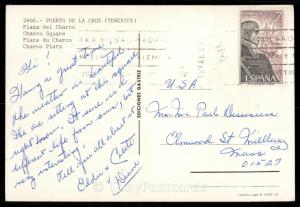 2606.- PUERTO DE LA CRUZ (TENERIFE)
Plaza del Charco
Charco Square
Place du Charco
Charco Platz
Hi!
Having a good time
the weather is beautiful
We are sitting at this square
right now. It sure is a
different life from ours, but
very interesting.
Tell you all about it.
Eddie &
EDICIONES GASTEIZ
ESPAÑA
U.S.A.
Mr and Mrs Paul
Elmwood St Millbury
Mass
01527